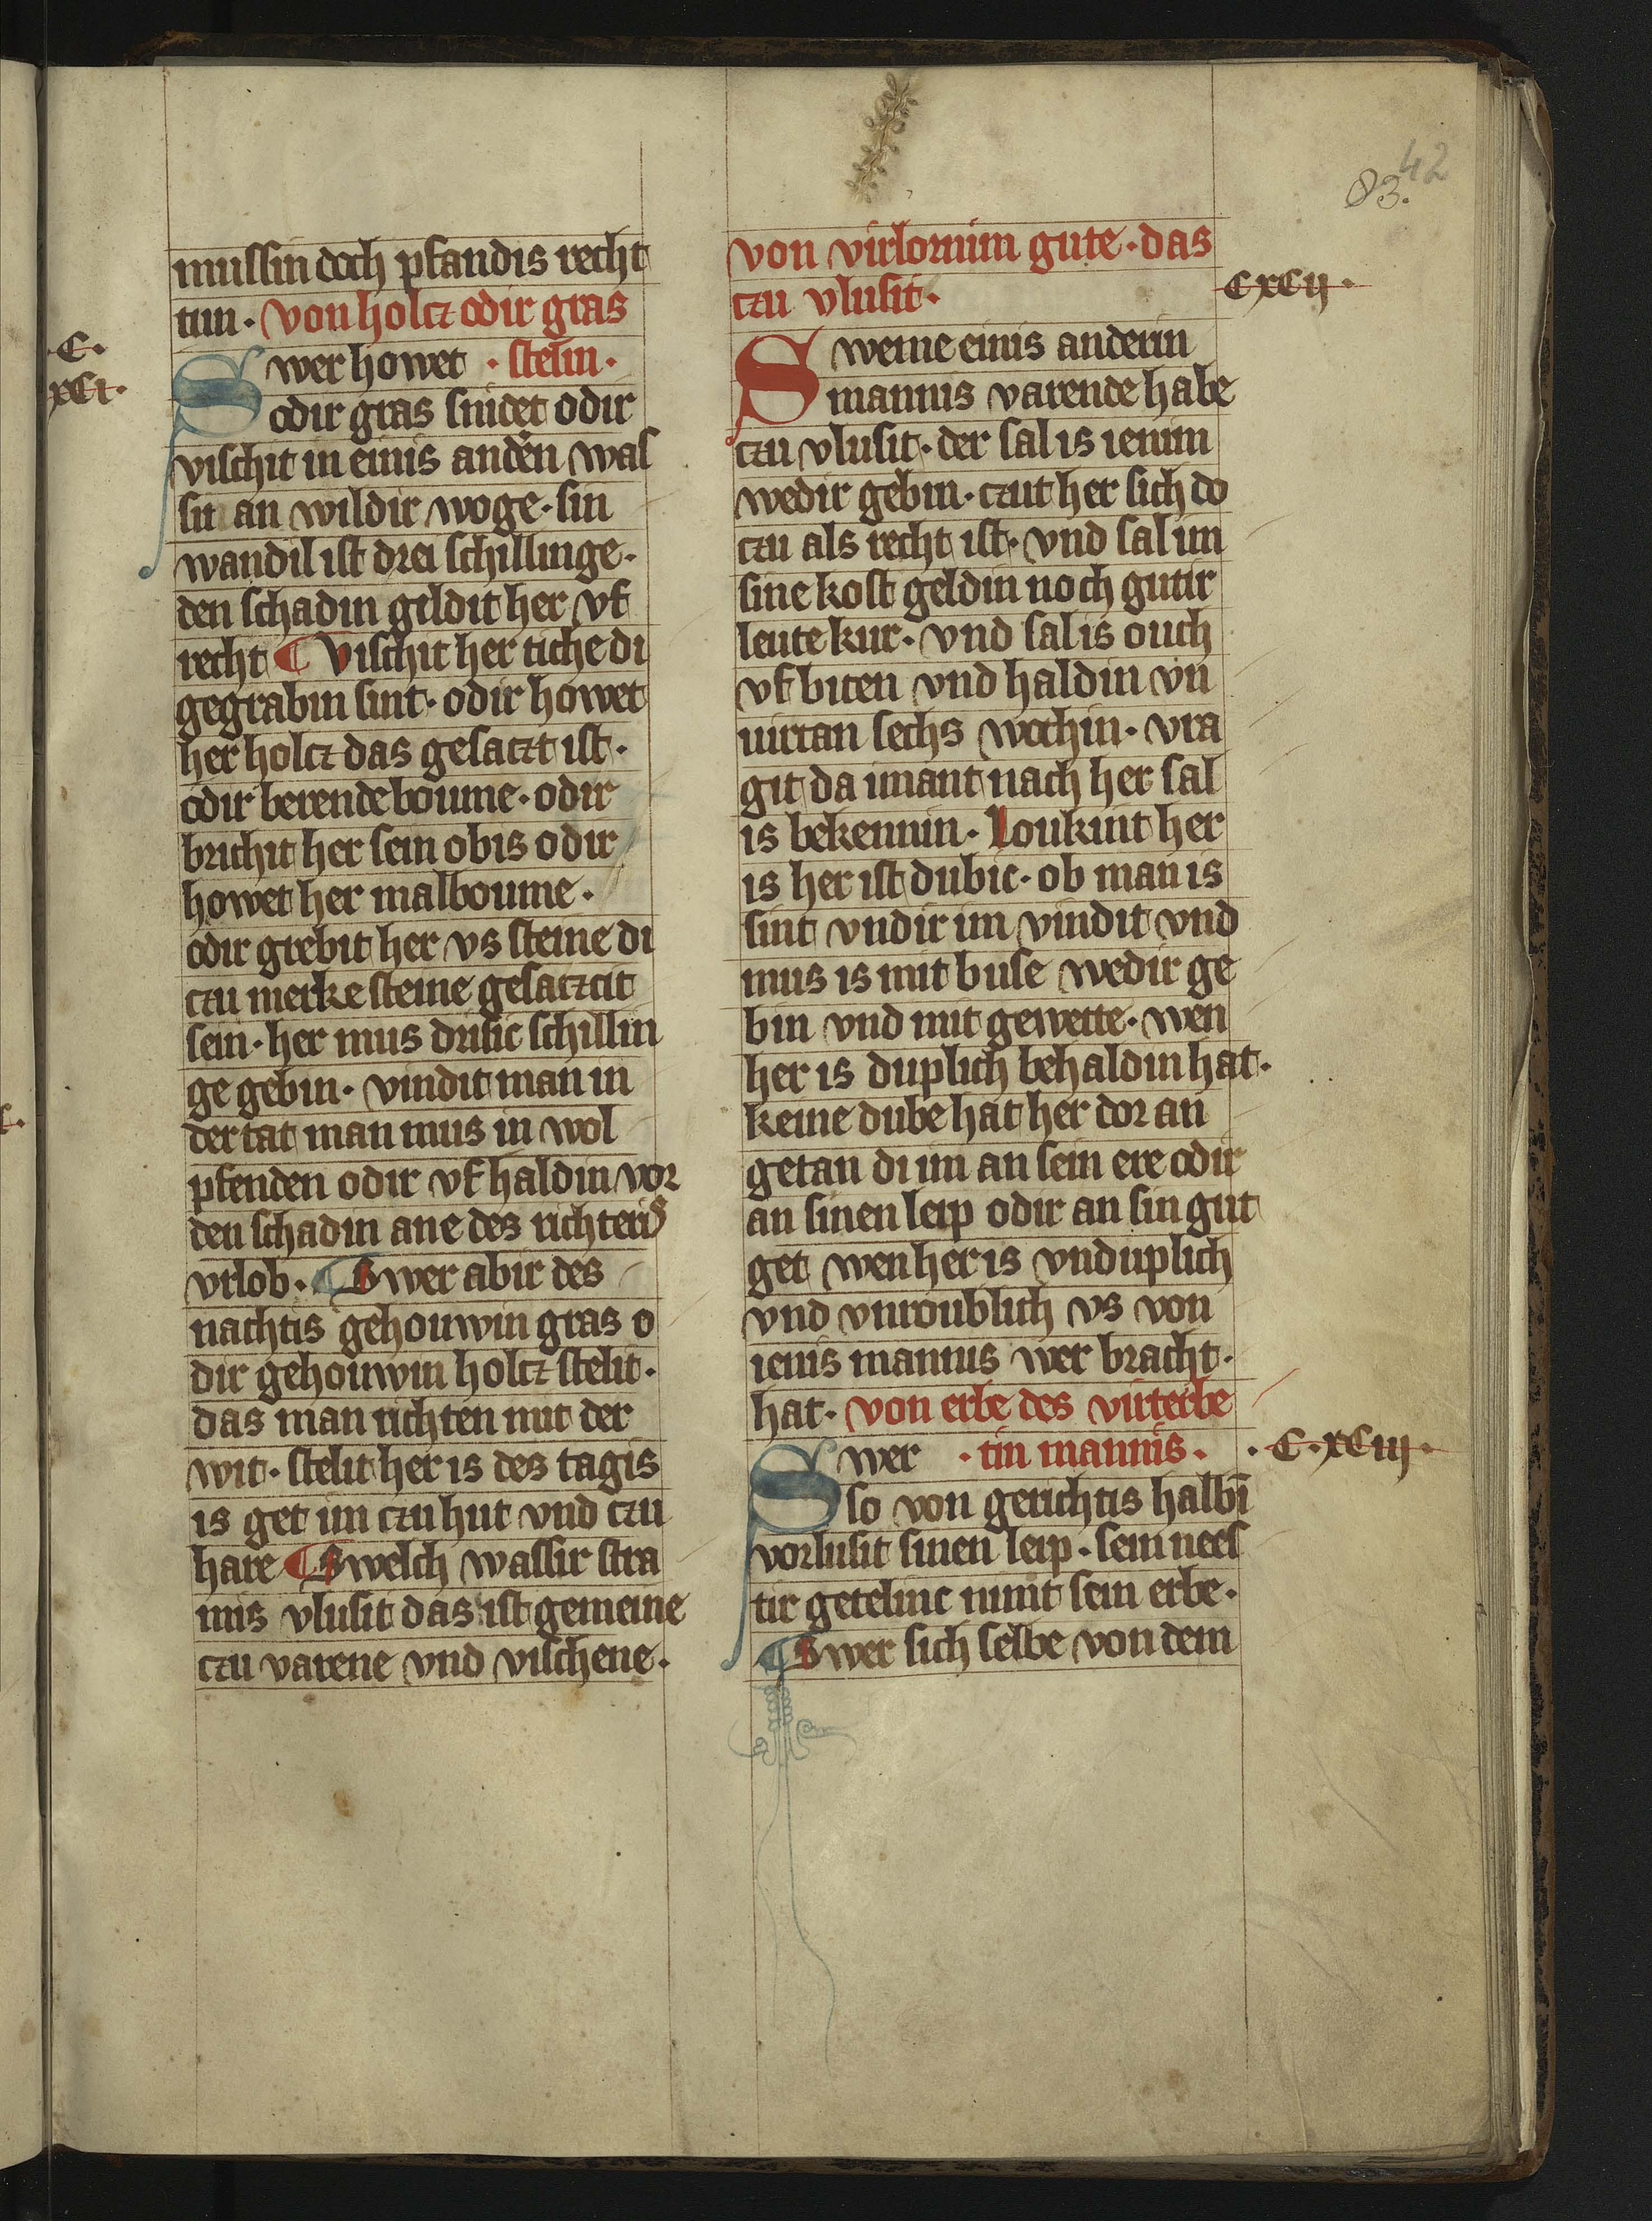 42
83.
mussin doch pfandis recht
tun. von holcz odir gras
.C.
xCi.
Swer howet . stelin.
odir gras snidet odir
vischit in einis andern was
sit an wildir woge. sin
wandil ist drei schillinge.
den schadin gildit her vf
recht ¶ Vischit her tiche di
gegrabin sint. odir howet
her holcz das gesaczt ist.
odir berende boume. odir
brichit her sein obis odir
howet her malboume.
odir grebit her vs steine di
czu merke steine gesaczcit
sein. her mus drisic schillin
ge gebin. vindit man in
der tat man mus in wol
pfenden odir vf haldin vor
den schadin ane des richteris
vrlob. ¶ Swer abir des
nachtis gehouwin gras o
dir gehouwin holcz stelit.
das man richten mit der
wit. stelit her is des tagis
is get im czu hut vnd czu
hare ¶ Swelch wassir stra
mis vlusit das ist gemeine
czu varene vnd vischene.
von virlornim gute. das
czu vlusit.
CxCij.
Sweme einis anderin
mannis varende habe
czu vlusit. der sal is ienim
wedir gebin. czut her sich do
czu als recht ist. vnd sal im
sine kost geldin noch gutir
leute kur. vnd sal is ouch
vf biten vnd haldin vn
uirtan sechs wochin. vra
git da imant nach her sal
is bekennin. Loukint her
is her ist dubic. ob man is
sint vndir im vindit vnd
mus is mit buse wedir ge
bin vnd mit gewette. wen
her is duplich behaldin hat.
keine dube hat her dor an
getan di im an sein ere odir
an sinen leip odir an sin gut
get wen her is vnduplich
vnd vnroublich vs von
ienis mannis wer bracht.
hat. von erbe des virterbe
Swer . tin mannis.
.C.xCiij.
so von gerichtis halbī
vorlusit sinen leip. sein nees
tir getelinc nimt sein erbe.
¶ Swer sich selbe von dem